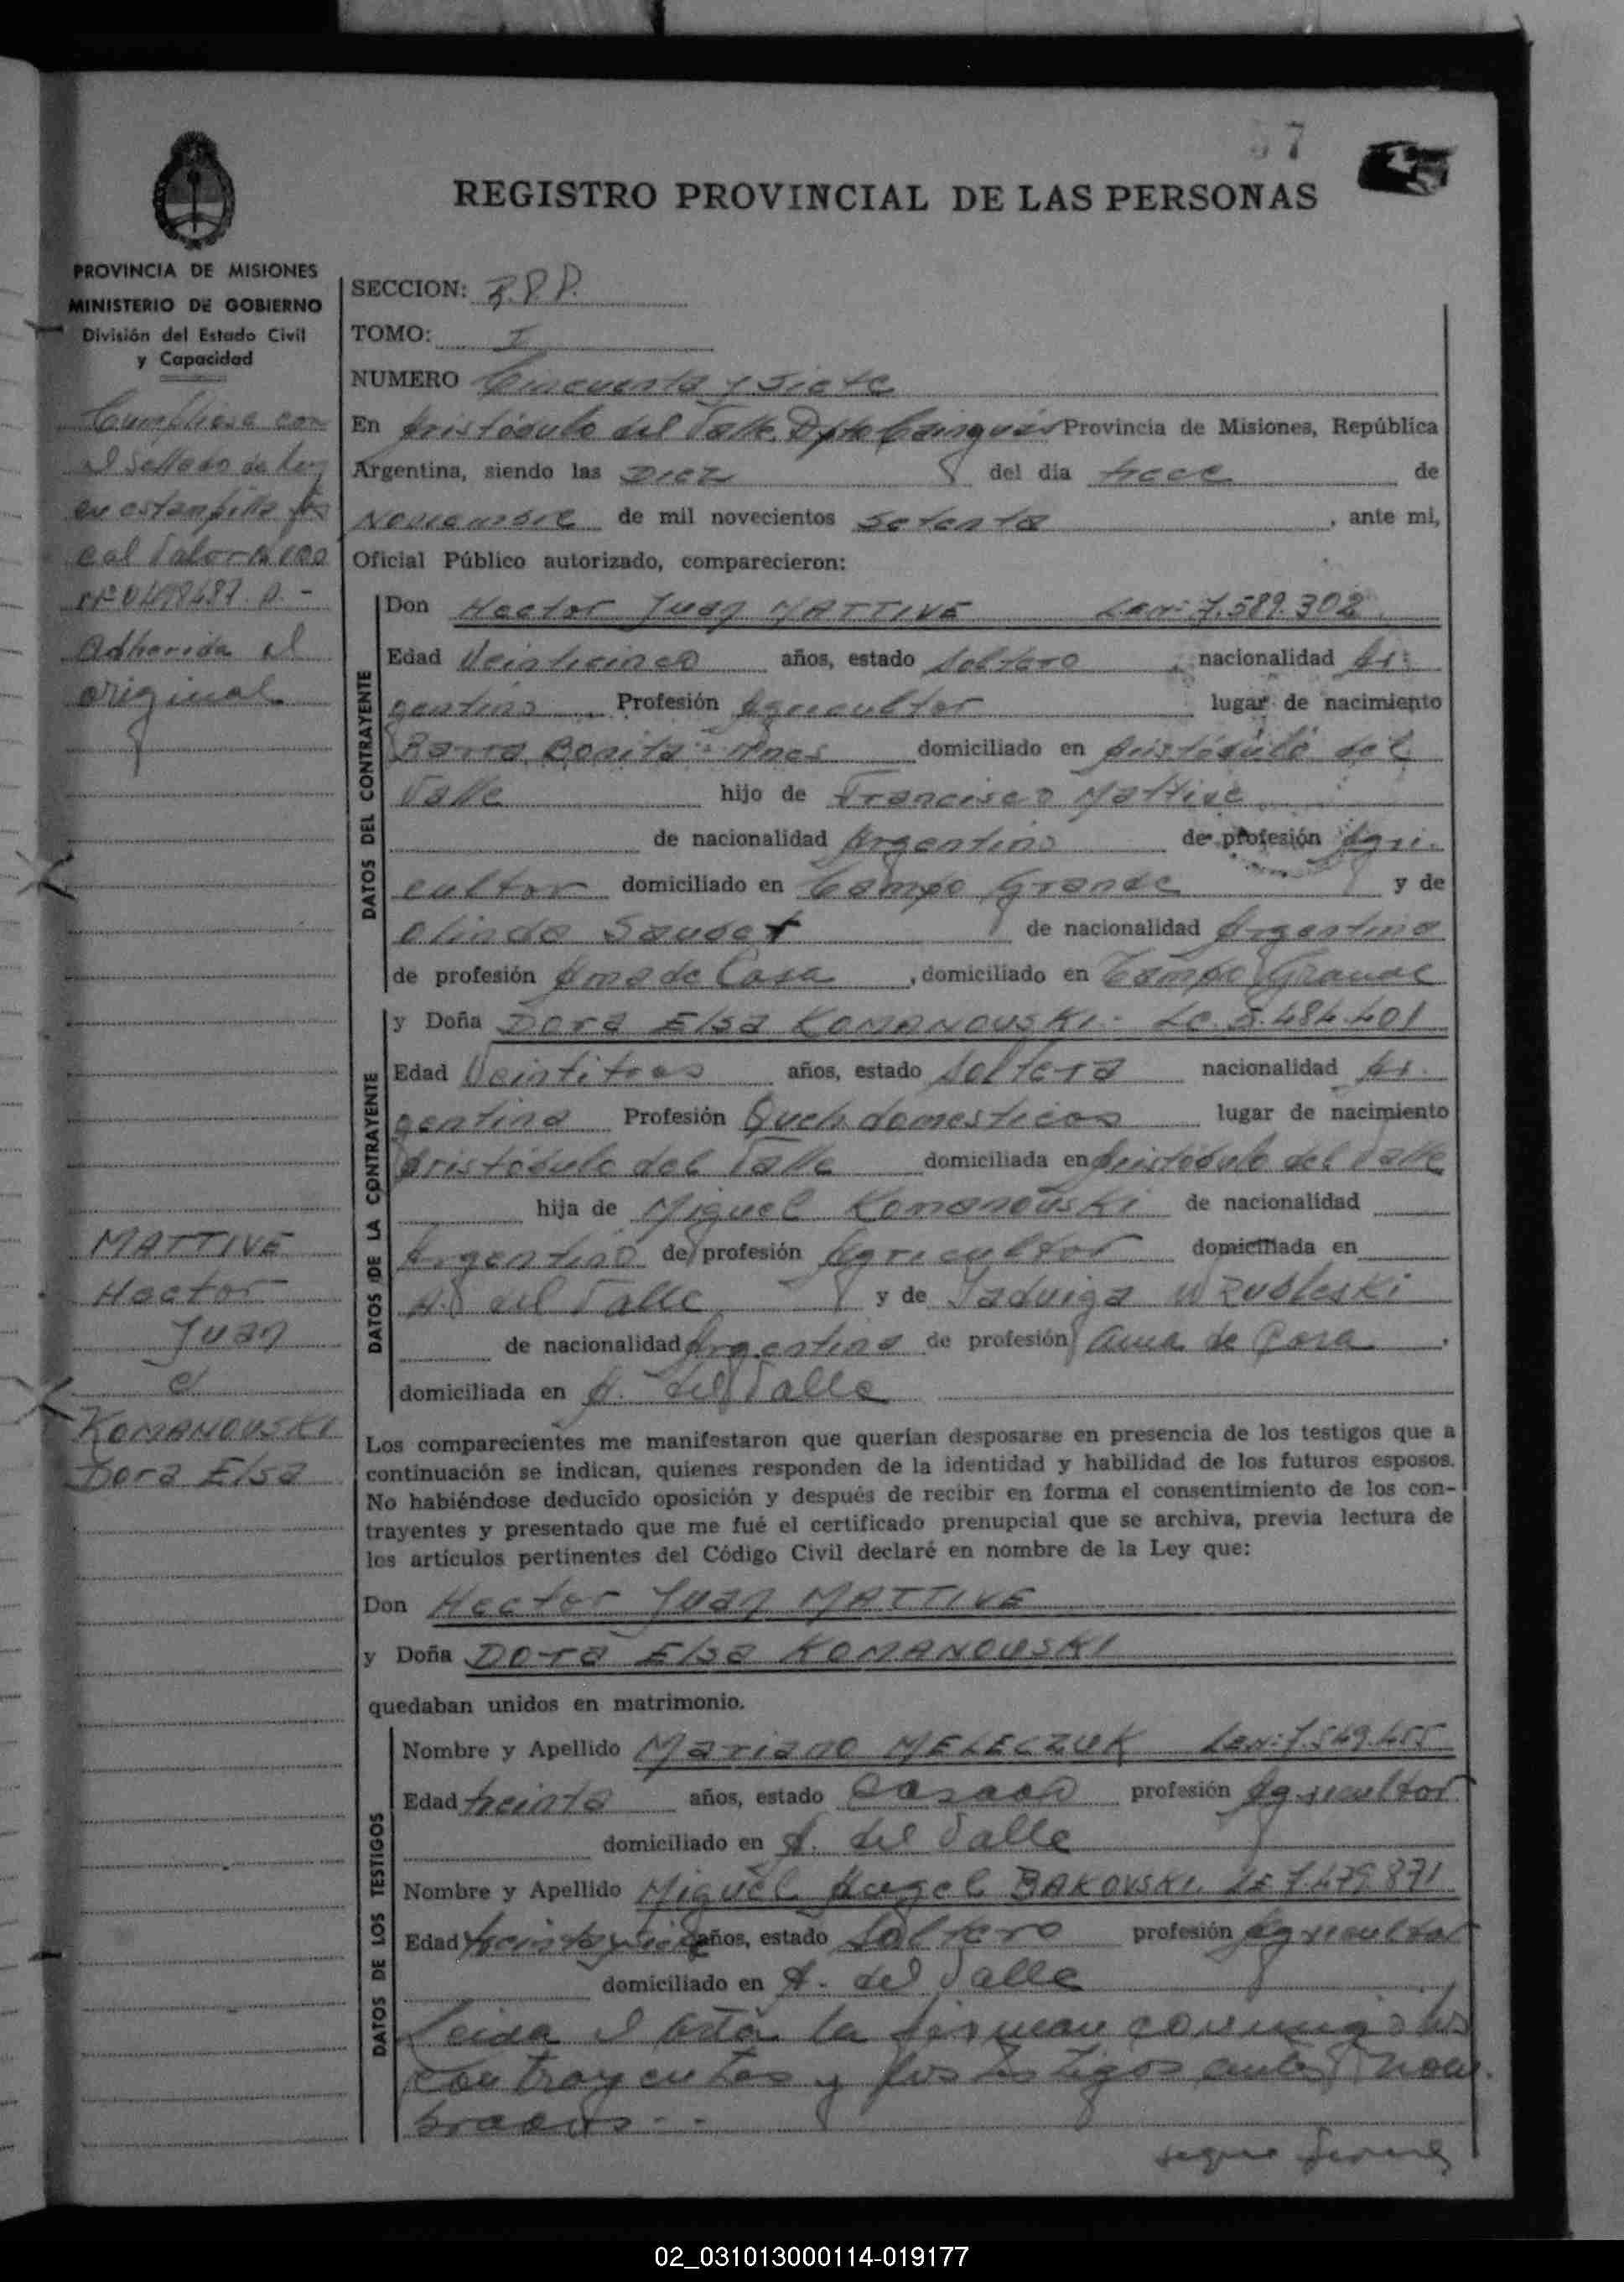 57
REGISTRO PROVINCIAL DE LAS PERSONAS
PROVINCIA DE MISIONES
MINISTERIO DE GOBIERNO
División del Estado Civil
y Capacidad
Cumpliose con
el sellado de ley
en estampilla fis
cal Valor
Nº 0498487.
Adherida al
original
MATTIVE
Hector
Juan
c/
KOMANOUSKI
Dora Elsa
SECCION: R.P.P.
TOMO: I
NUMERO Cincuenta y Siete
En Aristóbulo del Valle, Dpto Cainguás Provincia de Misiones, República
Argentina, siendo las Diez del día trece de
Noviembre de mil novecientos Setenta, ante mi,
Oficial Público autorizado, comparecieron:
DATOS DEL CONTRAYENTE
Don Hector Juan MATTIVE 7.589.302
Edad Veinticinco años, estado Soltero nacionalidad Ar-
gentino Profesión Agricultor lugar de nacimiento
Barra Bonita - Mnes domiciliado en Aristóbulo del
Valle hijo de Francisco Mattive
de nacionalidad Argentino de profesión Agri-
cultor domiciliado en Campo Grande y de
Olinda Saudet de nacionalidad Argentina
de profesión Ama de Casa, domiciliado en Campo Grande
DATOS DE LA CONTRAYENTE
y Doña Dora Elsa KOMANOUSKI - LC. 5.484.401
Edad Veintitres años, estado Soltera nacionalidad Ar-
gentina Profesión Queh. domesticos lugar de nacimiento
Aristóbulo del Valle domiciliada en Aristóbulo del Valle
hija de Miguel Komanouski de nacionalidad
Argentino de profesión Agricultor domiciliada en
A. del Valle y de Jadviga Wzubleski
de nacionalidad Argentina de profesión Ama de Casa.
domiciliada en A. del Valle
Los comparecientes me manifestaron que querían desposarse en presencia de los testigos que a
continuación se indican, quienes responden de la identidad y habilidad de los futuros esposos.
No habiéndose deducido oposición y después de recibir en forma el consentimiento de los con-
trayentes y presentado que me fué el certificado prenupcial que se archiva, previa lectura de
los artículos pertinentes del Código Civil declaré en nombre de la Ley que:
Don Hector Juan MATTIVE
y Doña Dora Elsa KOMANOUSKI
quedaban unidos en matrimonio.
DATOS DE LOS TESTIGOS
Nombre y Apellido Mariano MELECZUK 7.549.455
Edad treinta años, estado Casado profesión Agricultor
domiciliado en A. del Valle
Nombre y Apellido Miguel Angel BAKOVSKI. LE 7.479.871
Edad treinta y siete años, estado Soltero profesión Agricultor
domiciliado en A. del Valle
Leida el Acta la firman conmigo los
contrayentes y los testigos antes nom-
brados. -
sigue firmas
02_031013000114-019177